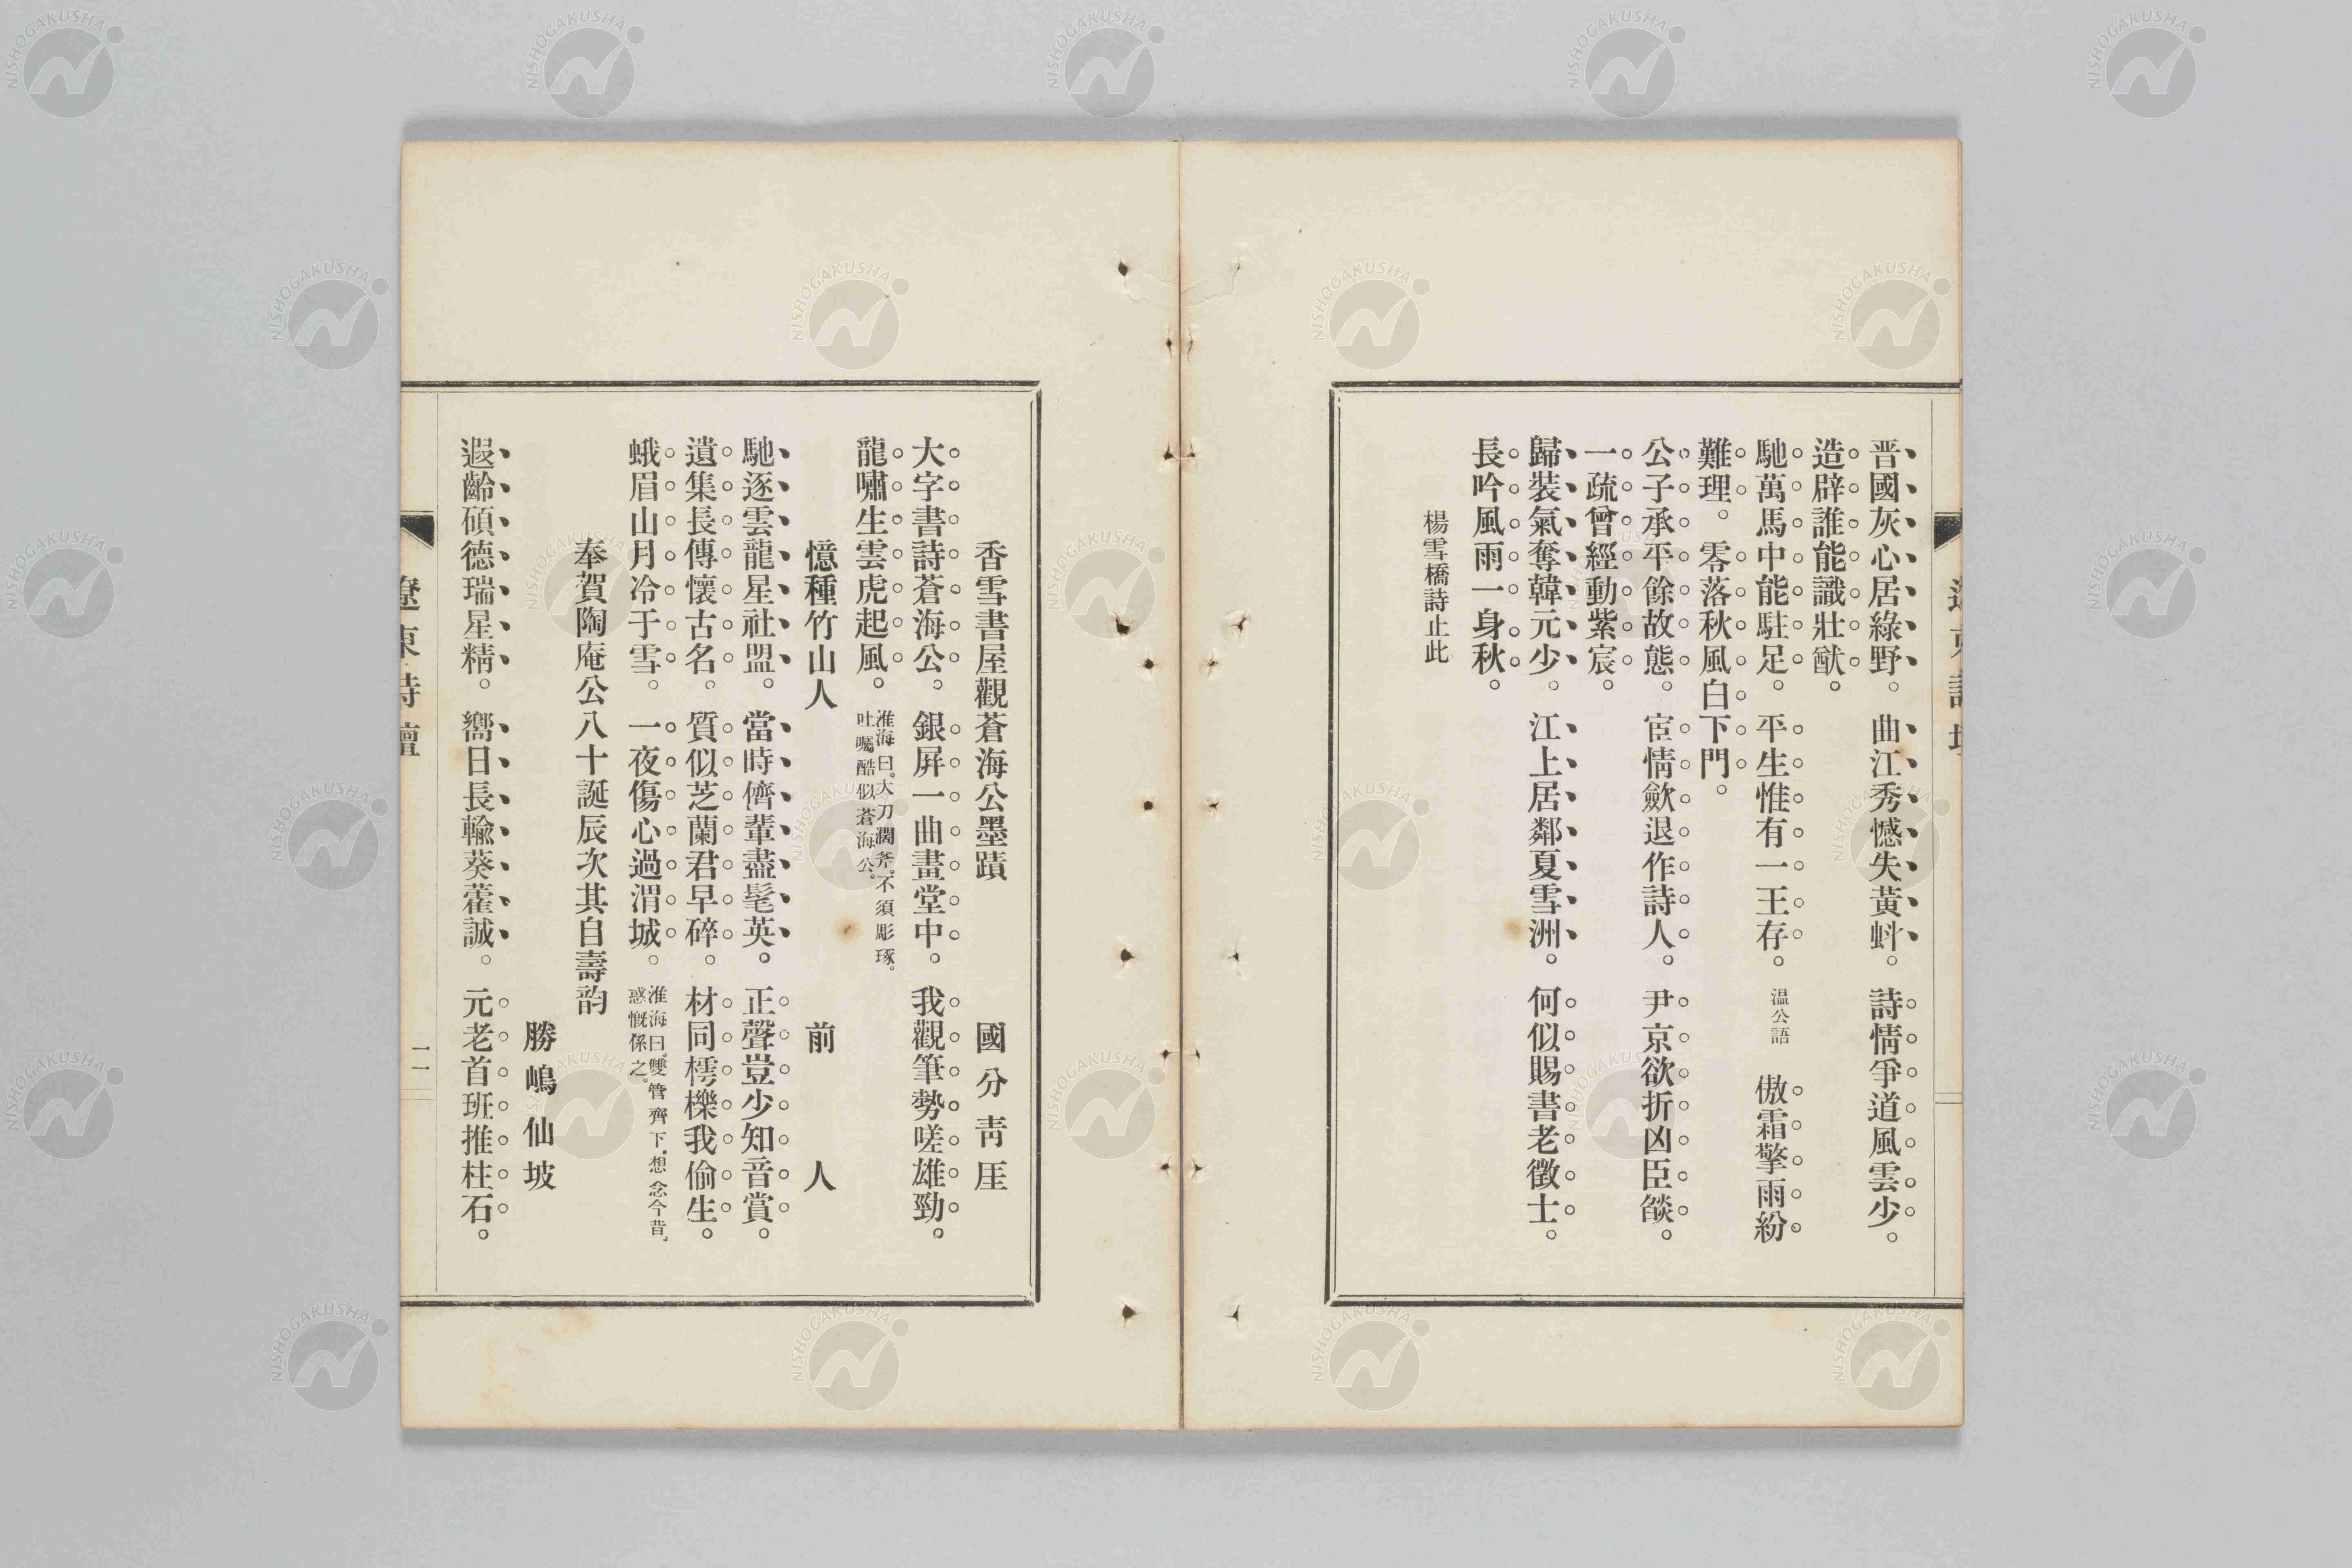 晋國灰心居綠野。曲江秀憾失黃蚪。詩情爭道風雲少。
造辟誰能識壯猷。
馳萬馬中能駐足。平生惟有一王存。温公語 傲霜擎雨紛
難理。零落秋風白下門。
公子承平餘故態。宦情歛退作詩人。尹京欲折凶臣燄。
一疏曾經動紫宸。
歸裝氣奪韓元少。江上居鄰夏雪洲。何似賜書老徵士。
長吟風雨一身秋。
楊雪橋詩止此
香雪書屋觀蒼海公墨蹟 國分靑厓
大字書詩蒼海公。銀屛一曲畫堂中。我觀筆勢嗟雄勁。
龍嘯生雲虎起風。
淮海曰。大刀濶斧。不須彫琢。
吐囑酷似蒼海公。
憶種竹山人 前人
馳逐雲龍星社盟。當時儕輩盡髦英。正聲豈少知音賞。
遺集長傳懷古名。質似芝蘭君早碎。材同樗櫟我偷生。
蛾眉山月冷于雪。一夜傷心過渭城。
淮海曰。雙管齊下。想念今昔。
惑慨係之。
奉賀陶庵公八十誕辰次其自壽韵
勝嶋仙坡
遐齡碩德瑞星精。嚮日長輸葵藿誠。元老首班推柱石。
遼東詩壇
一一
NISHOGAKUSHA